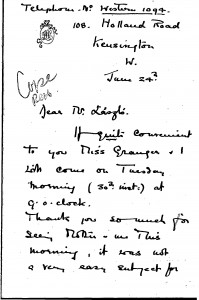 Telephone. No Western 1094.
108. Holland Road
Kensington
W.
June 24th
Dear Mr. László.
If quite convenient
to you Miss Granger & I
will come on Tuesday
morning (30th inst.) at
9. o. clock.
Thank you so much for
seeing Mother - in - this
morning, it was not
a very easy subject for